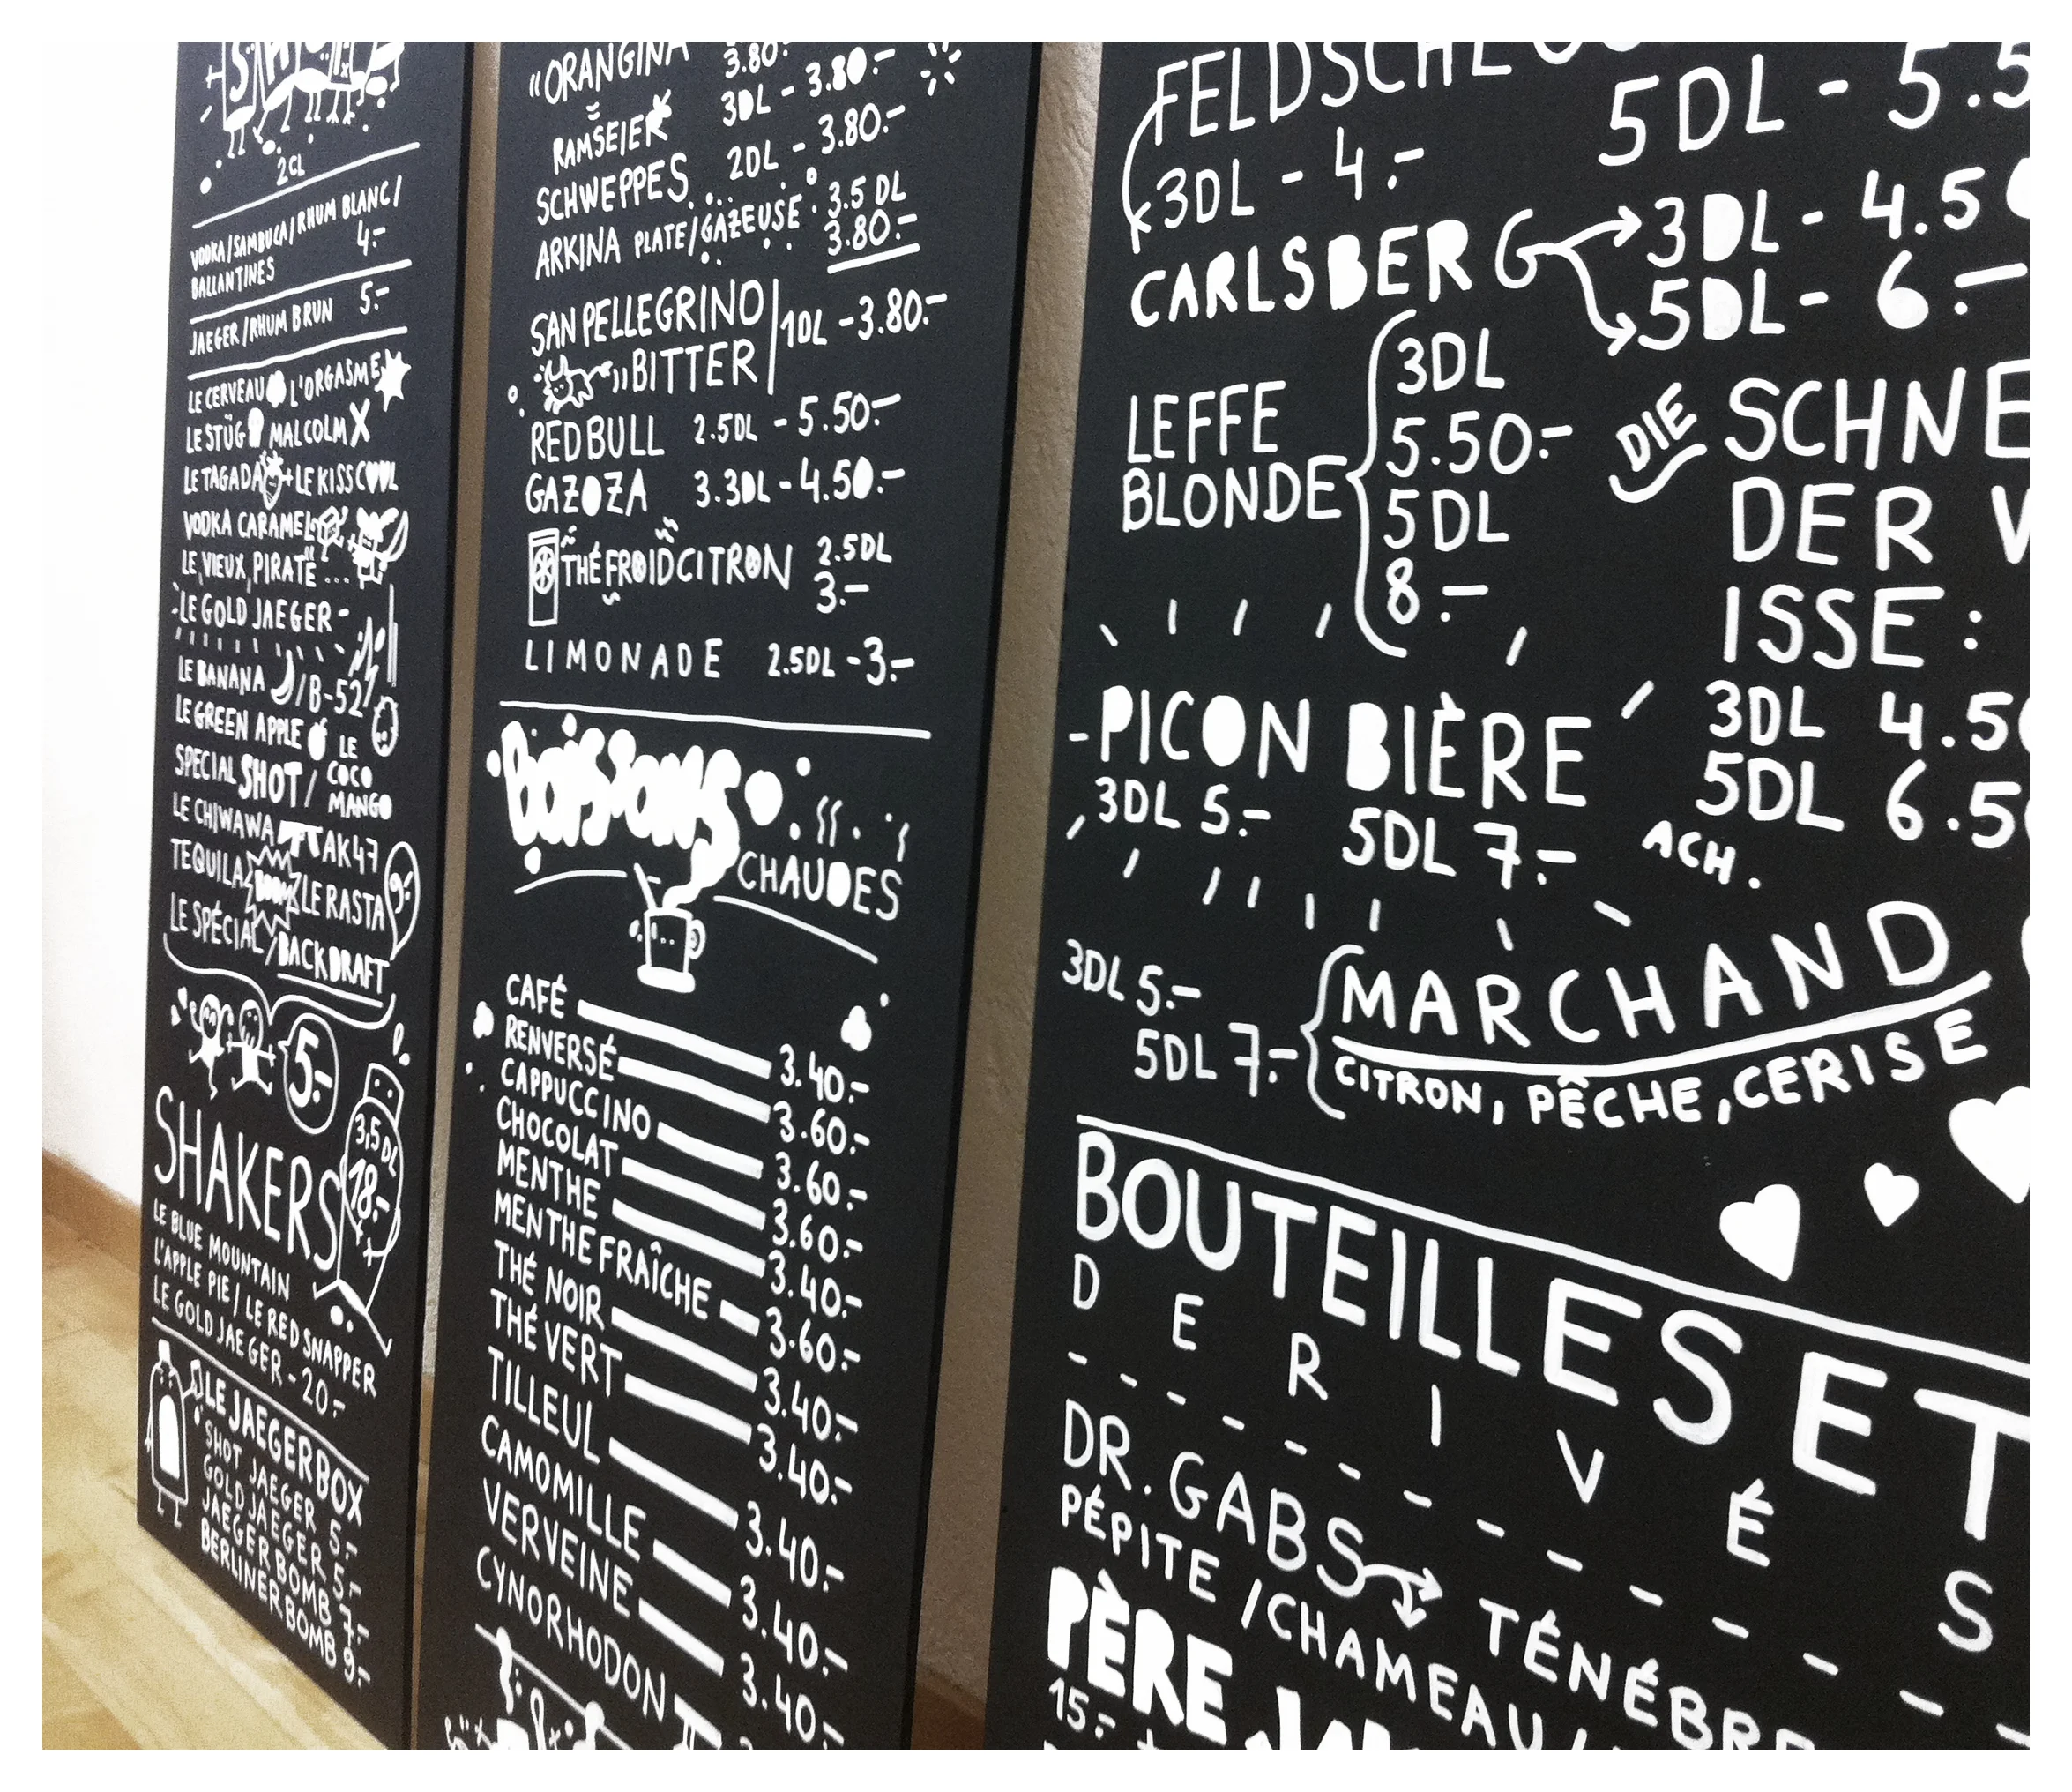 SHOTS
2CL
VODKA/SAMBUCA/RHUM BLANC/
BALLANTINES 4.-
JAEGER/RHUM BRUN 5.-
LE CERVEAU L'ORGASME
LE STÜG MALCOLM X
LE TAGADA + LE KISSCOOL
VODKA CARAMEL
LE VIEUX PIRATE ...
LE GOLD JAEGER -
LE BANANA / B-52
LE GREEN APPLE LE
SPECIAL SHOT / COCO
MANGO
LE CHIWAWA AK47
TEQUILA BOOM LE RASTA
LE SPÉCIAL / BACKDRAFT
5.-
SHAKERS
3,5DL
18.-
LE BLUE MOUNTAIN
L'APPLE PIE / LE RED SNAPPER
LE GOLD JAEGER - 20.-
LE JAEGERBOX
SHOT JAEGER 5.-
GOLD JAEGER 5.-
JAEGER BOMB 7.-
BERLINER BOMB 9.-
"ORANGINA 3.80.-
RAMSEIER 3DL - 3.80.-
SCHWEPPES... 2DL - 3.80.-
ARKINA PLATE/GAZEUSE 3.5 DL
3.80.-
SAN PELLEGRINO
BITTER 1DL - 3.80.-
REDBULL 2.5DL - 5.50.-
GAZOZA 3.3DL - 4.50.-
THÉ FROID CITRON 2.5DL
3.-
LIMONADE 2.5DL - 3.-
boissons
CHAUDES
CAFÉ 3.40.-
RENVERSÉ 3.60.-
CAPPUCCINO 3.60.-
CHOCOLAT 3.60.-
MENTHE 3.40.-
MENTHE FRAÎCHE 3.60.-
THÉ NOIR 3.40.-
THÉ VERT 3.40.-
TILLEUL 3.40.-
CAMOMILLE 3.40.-
VERVEINE 3.40.-
CYNORHODON
FELDSCHLO
5DL - 5.5
3DL - 4.-
CARLSBERG 3DL - 4.50
5DL - 6.-
LEFFE
BLONDE
3DL
5.50.-
5DL
8.-
DIE SCHNE
DER W
ISSE :
3DL 4.50
5DL 6.50
ACH.
-PICON BIÈRE
3DL 5.- 5DL 7.-
3DL 5.-
5DL 7.-
MARCHAND
CITRON, PÊCHE, CERISE
BOUTEILLES ET
DÉRIVÉS
DR. GABS
PÉPITE / CHAMEAU / TÉNÉBRE
PÈRE
15.-